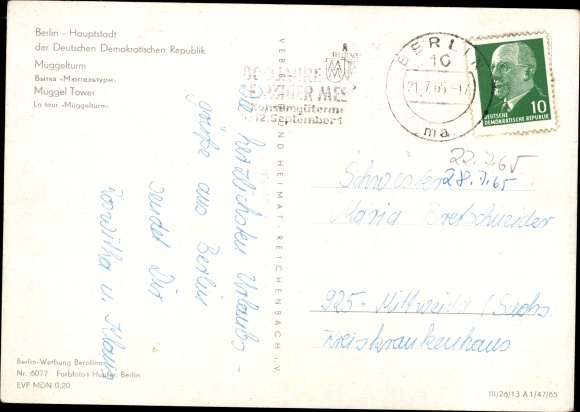 Berlin - Hauptstadt
der Deutschen Demokratischen Republik
Müggelturm
Вытка «Мюггельтурм»
Müggel Tower
La tour «Müggelturm»
800 JAHRE
LEIPZIGER MESSE
Konsumgüterm
5.-12. September 1
BERLIN
10
21.7.65-17
ma
10
DEUTSCHE
DEMOKRATISCHE REPUBLIK
22.7.65
28.7.65
Die herzlichsten Urlaubs-
grüße aus Berlin
sendet Dir
u. Klaus
VEB BILD UND HEIMAT · REICHENBACH i. V.
Schwester
Maria Bretschneider
925 - Mittweida / Sachs.
Kreiskrankenhaus
Berlin-Werbung Berolina
Nr. 6077 Farbfoto: Hupfer, Berlin
EVP MDN 0,20
III/26/13 A 1/47/65